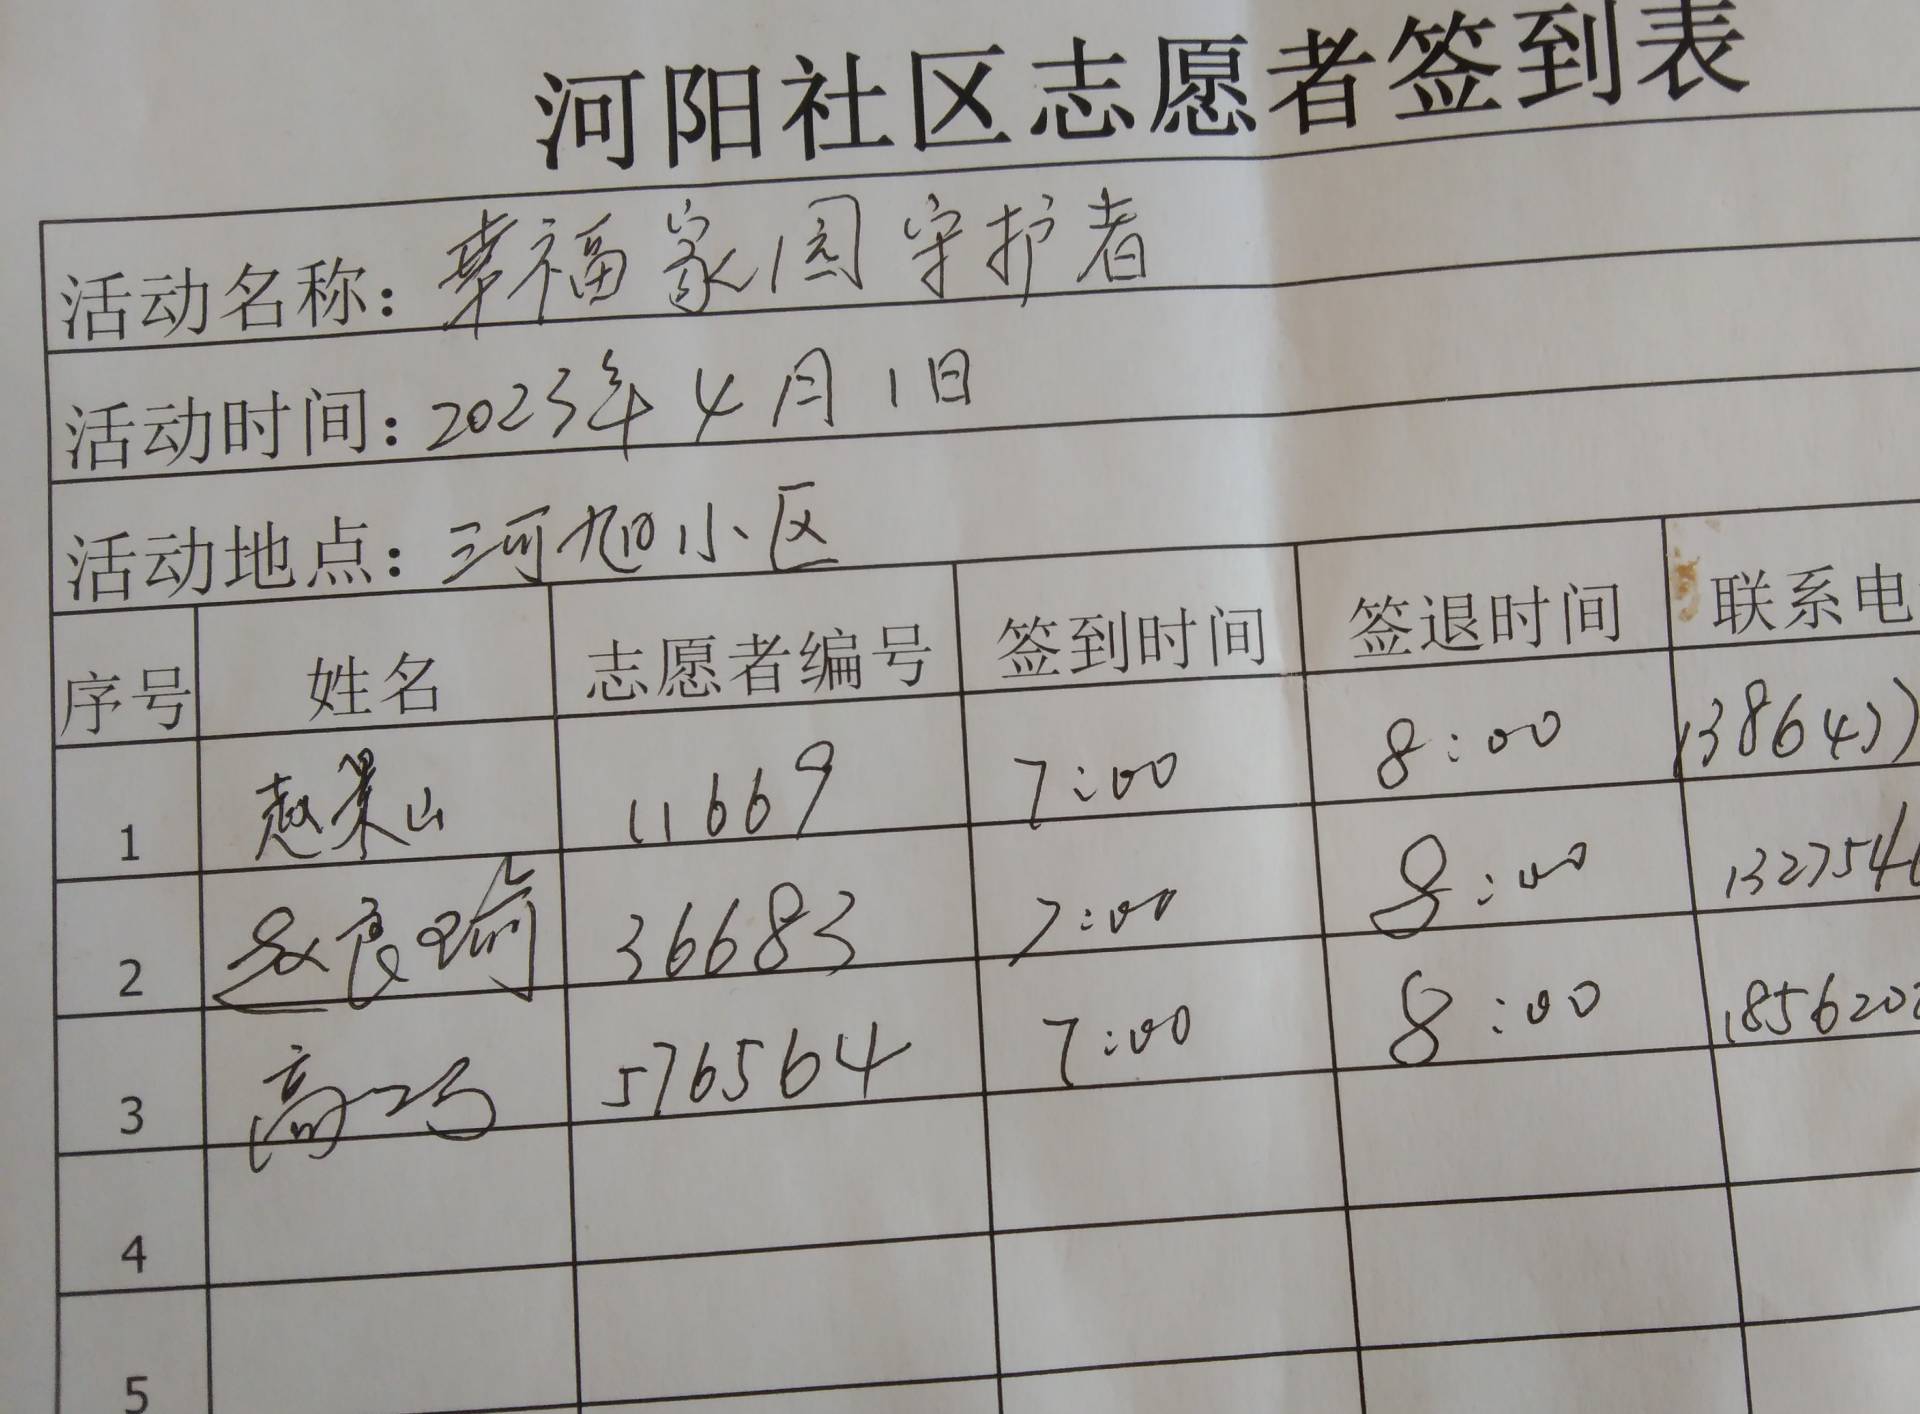 河阳社区志愿者签到表
活动名称：幸福家园守护者
活动时间：2023年4月1日
活动地点：河旭小区
序号 姓名 志愿者编号 签到时间 签退时间 联系电
1 赵景山 11669 7:00 8:00 138643
2 赵良瑜 36683 7:00 8:00 1327546
3 高巧 576564 7:00 8:00 1856202
4
5